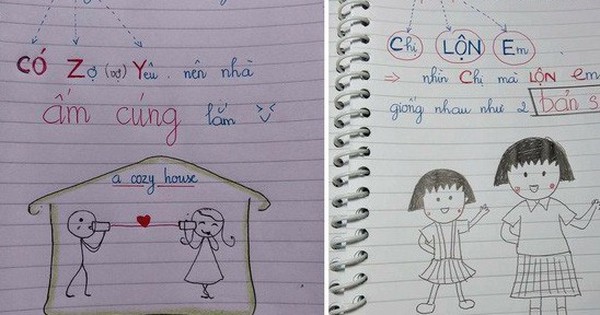 CÓ Zợ (vợ) Yêu nên nhà
ấm cúng lắm
a cozy house
Chị LỘN Em
⇒ nhìn Chị mà LỘN em
giống nhau như 2 bản s